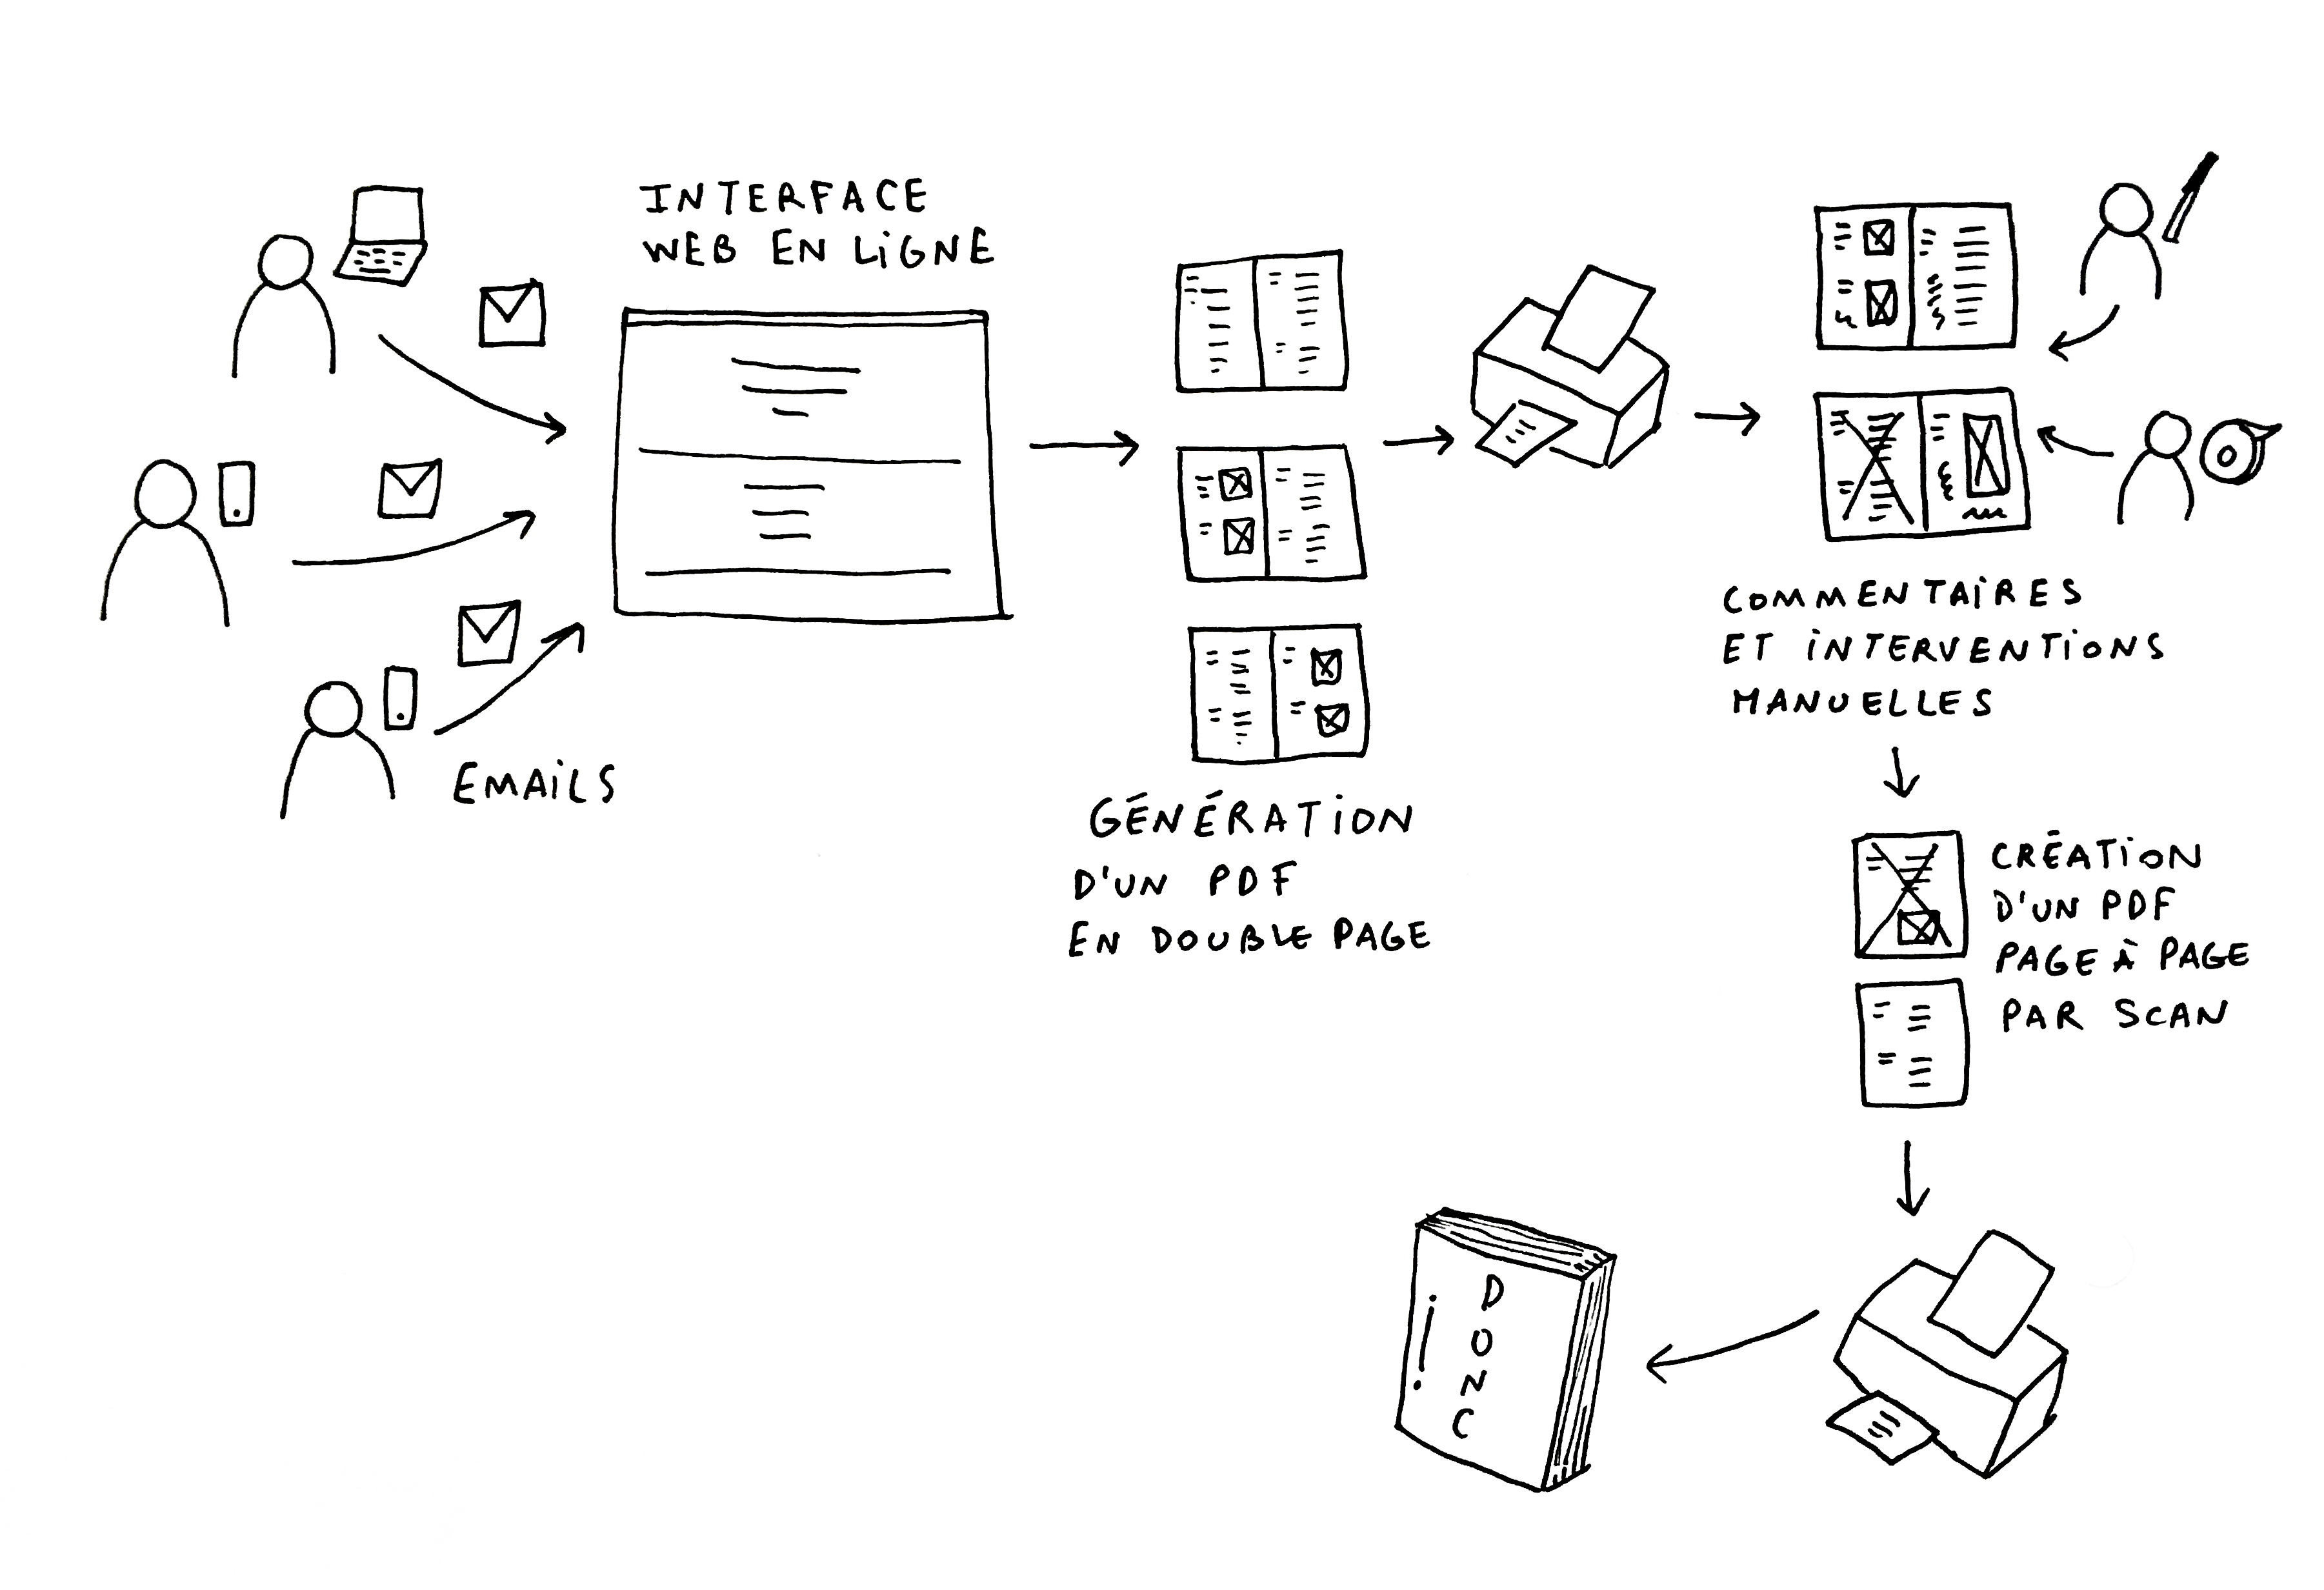 INTERFACE
WEB EN LIGNE
EMAILS
GÉNÉRATION
D'UN PDF
EN DOUBLE PAGE
COMMENTAIRES
ET INTERVENTIONS
MANUELLES
CRÉATION
D'UN PDF
PAGE À PAGE
PAR SCAN
DONC
!